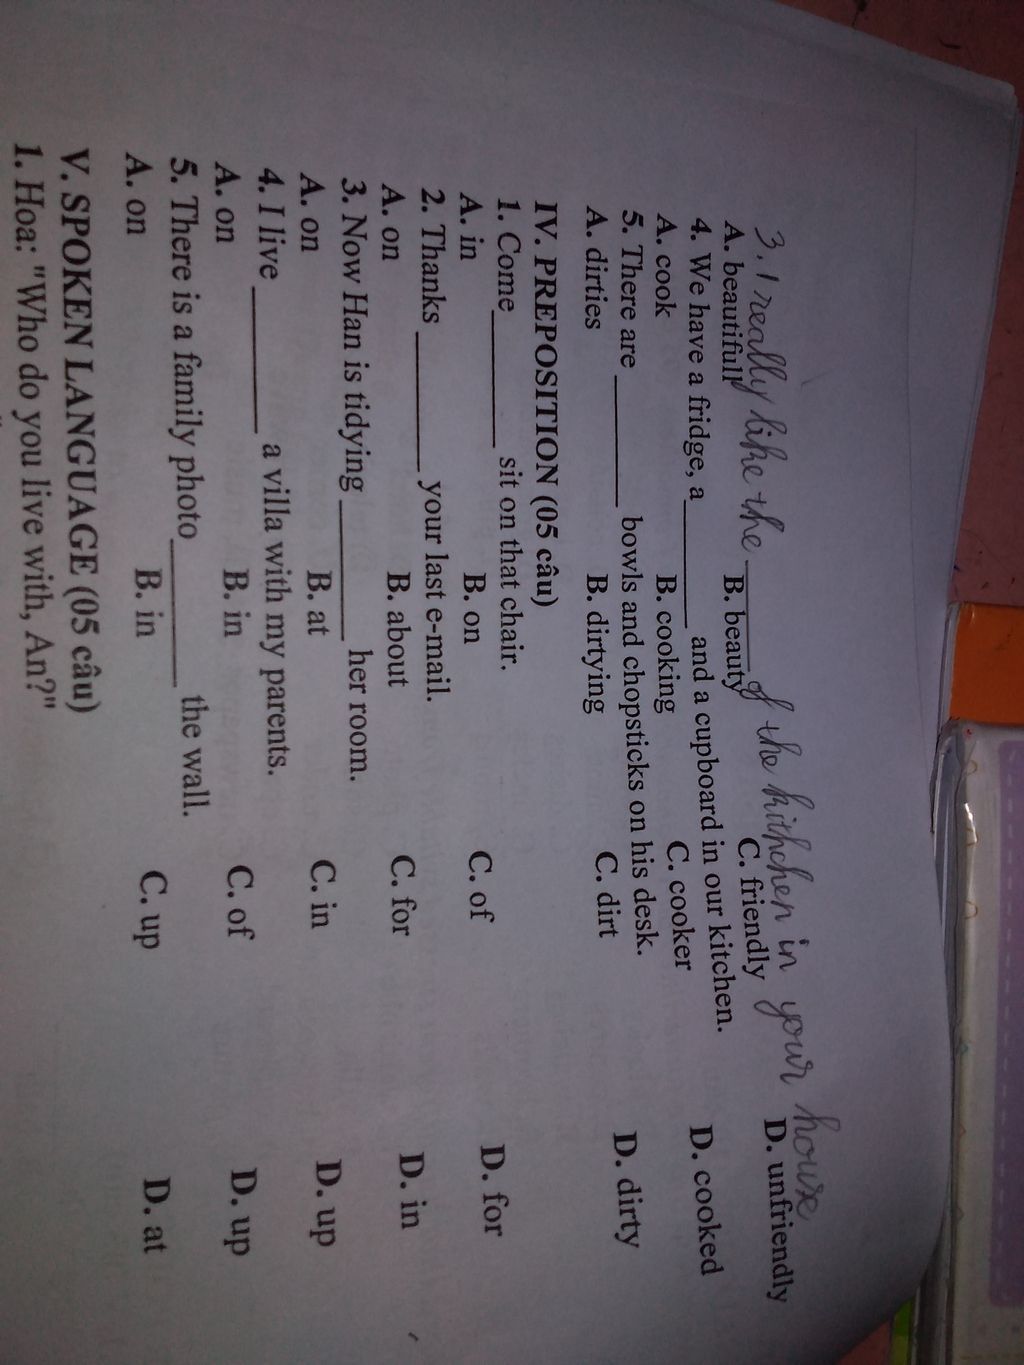 3. I really like the ______ of the kithchen in your house
A. beautifull B. beauty C. friendly D. unfriendly
4. We have a fridge, a ______ and a cupboard in our kitchen.
A. cook B. cooking C. cooker D. cooked
5. There are ______ bowls and chopsticks on his desk.
A. dirties B. dirtying C. dirt D. dirty
IV. PREPOSITION (05 câu)
1. Come ______ sit on that chair.
A. in B. on C. of D. for
2. Thanks ______ your last e-mail.
A. on B. about C. for D. in
3. Now Han is tidying ______ her room.
A. on B. at C. in D. up
4. I live ______ a villa with my parents.
A. on B. in C. of D. up
5. There is a family photo ______ the wall.
A. on B. in C. up D. at
V. SPOKEN LANGUAGE (05 câu)
1. Hoa: "Who do you live with, An?"